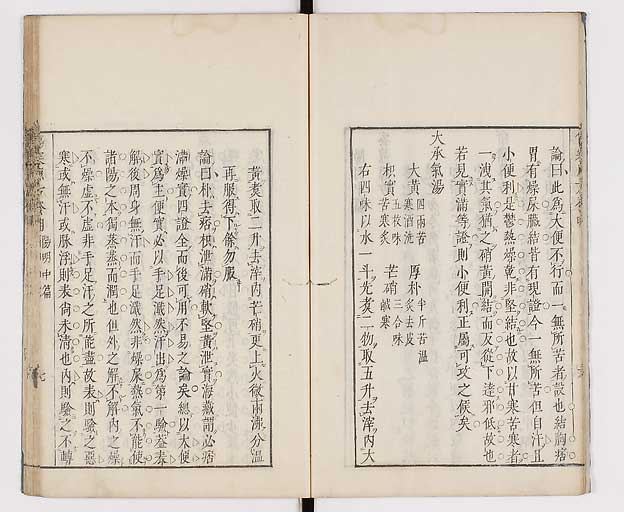 論曰此為大便不行而一無所苦者設也結胸痞
胃有燥屎臟結皆有現證今一無所苦但自汗且
小便利是鬱熱燥乾非堅結也故以甘寒苦寒者
一洩其氣猶之硝黃開結而又從下達邪低故也
若見實滿等證則小便利正屬可攻之候矣
大承氣湯
大黃 四兩苦寒酒洗 厚朴 半斤苦溫炙去皮
枳實 五枚味苦寒炙 芒硝 三合味鹹寒
右四味以水一斗先煑二物取五升去滓內大
黃煑取二升去滓內芒硝更上火微兩沸分溫
再服得下餘勿服
論曰朴去痞枳泄滿硝軟堅黃泄實海藏謂必痞
滿燥實四證全而後可用不易之論矣總以大便
實為主便實必以手足濈然汗出為第一驗蓋表
解後周身無汗而手足濈然非燥屎熱氣不能使
諸陽之本獨蒸蒸而潤也但外之解不解內之燥
不燥虛不虛非手足汗之所能盡故表則驗之惡
寒或無汗或脉浮則表尚未淸也內則驗之不轉
陽明中篇
七